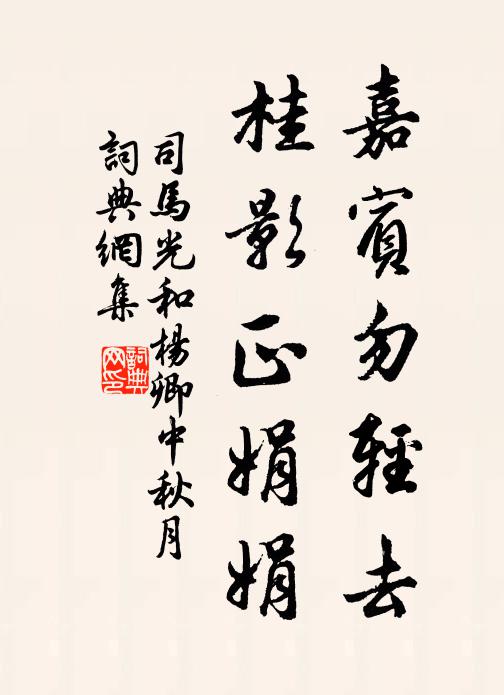 嘉賓勿輕去
桂影正娟娟
司馬光和楊卿中秋月
詞典網集
詞典网印